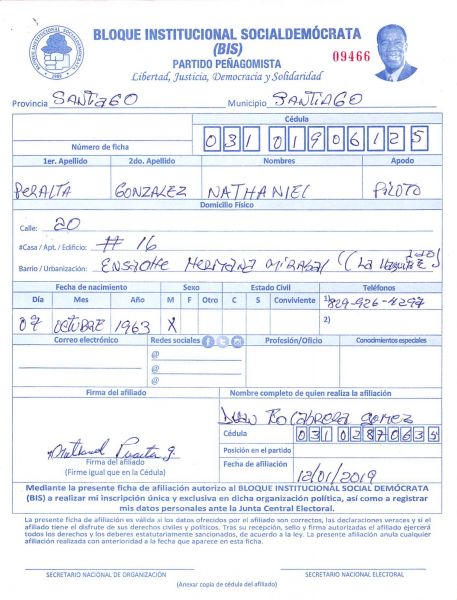 BLOQUE INSTITUCIONAL SOCIALDEMÓCRATA
(BIS)
PARTIDO PEÑAGOMISTA
09466
Libertad, Justicia, Democracia y Solidaridad
Provincia SANTIAGO Municipio SANTIAGO
Cédula
Número de ficha 03101906125
1er. Apellido 2do. Apellido Nombres Apodo
PERALTA GONZALEZ NATHANIEL PILOTO
Domicilio Físico
Calle: 20
#Casa / Apt. / Edificio: # 16
Barrio / Urbanización: ENSANCHE HERMANA MIRABAL
Fecha de nacimiento Sexo Estado Civil Teléfonos
Día Mes Año M F Otro C S Conviviente 1) 829-926-4297
07 OCTUBRE 1963 X 2)
Correo electrónico Redes sociales Profesión/Oficio Conocimientos especiales
@
@
@
Firma del afiliado Nombre completo de quien realiza la afiliación
JUAN CABRERA GOMEZ
Cédula 03102870635
Posición en el partido
Firma del afiliado
(Firme igual que en la Cédula)
Fecha de afiliación 12/01/2019
Mediante la presente ficha de afiliación autorizo al BLOQUE INSTITUCIONAL SOCIAL DEMÓCRATA
(BIS) a realizar mi inscripción única y exclusiva en dicha organización política, así como a registrar
mis datos personales ante la Junta Central Electoral.
La presente ficha de afiliación es válida si los datos ofrecidos por el afiliado son correctos, las declaraciones veraces y si el
afiliado tiene el disfrute de sus derechos civiles y políticos. Tras su recepción, sello y firma autorizadas el afiliado ejercerá
todos los derechos y los deberes estatutariamente sancionados, de acuerdo a la ley. La presente afiliación anula cualquier
afiliación realizada con anterioridad a la fecha que aparece en esta ficha.
SECRETARIO NACIONAL DE ORGANIZACIÓN SECRETARIO NACIONAL ELECTORAL
(Anexar copia de cédula del afiliado)